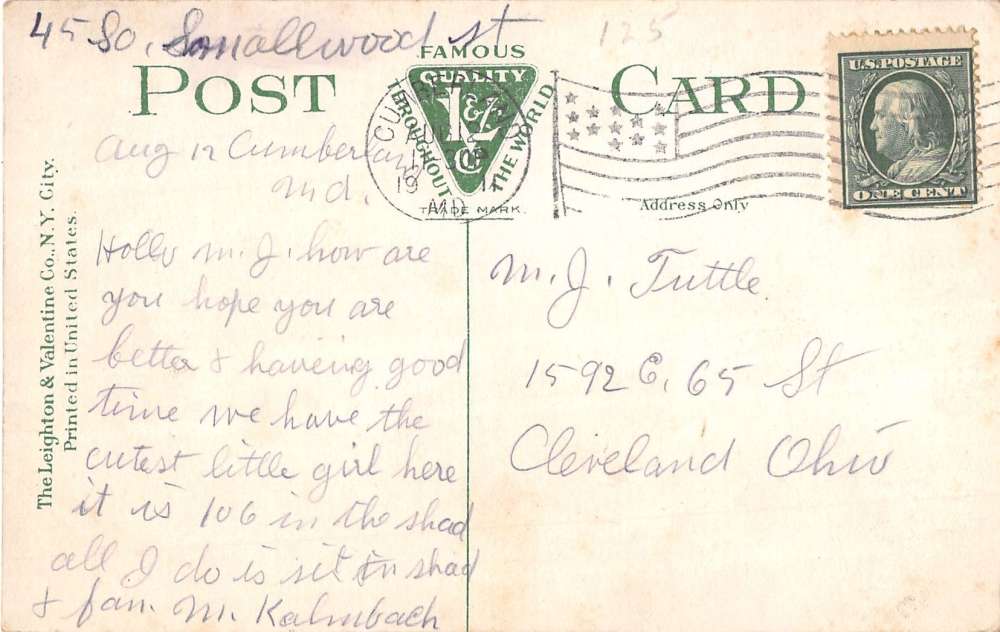 45 So. Smallwood st
125
POST CARD
FAMOUS
QUALITY
L & V Co
THROUGHOUT THE WORLD
TRADE MARK
CUMBERLAND
AUG 12
19 11
MD.
Address Only
U.S. POSTAGE
ONE CENT
The Leighton & Valentine Co., N.Y. City.
Printed in United States.
Aug 12 Cumberland
Md.
Hollo M. J. how are
you hope you are
better & haveing good
time we have the
cutest little girl here
it is 106 in the shad
all I do is sit in shad
& fan. M. Kalmbach
M. J. Tuttle.
1592 E. 65 St
Cleveland Ohio